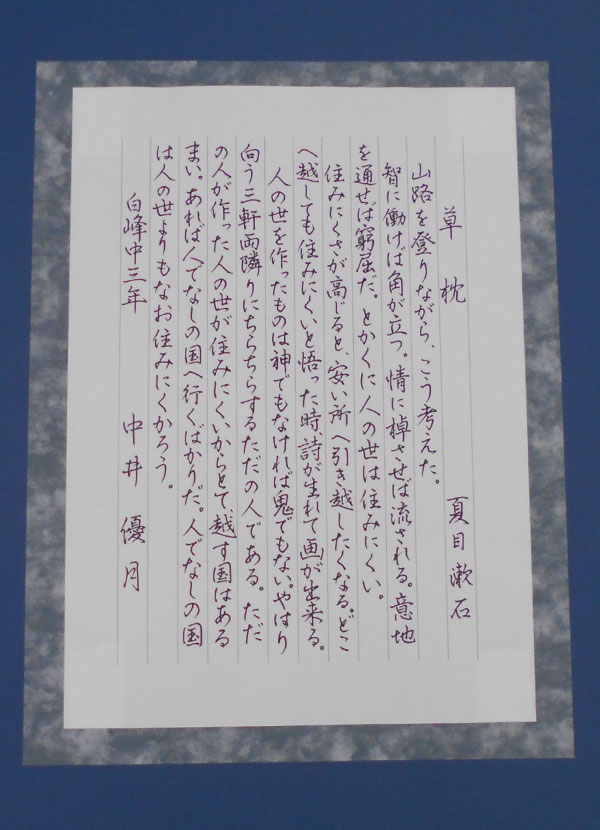 草枕 夏目漱石
山路を登りながら、こう考えた。
智に働けば角が立つ。情に棹させば流される。意地
を通せば窮屈だ。とかくに人の世は住みにくい。
住みにくさが高じると、安い所へ引き越したくなる。どこ
へ越しても住みにくいと悟った時、詩が生れて画が出来る。
人の世を作ったものは神でもなければ鬼でもない。やはり
向う三軒両隣りにちらちらするただの人である。ただ
の人が作った人の世が住みにくいからとて、越す国はある
まい。あれば人でなしの国へ行くばかりだ。人でなしの国
は人の世よりもなお住みにくかろう。
白峰中三年 中井優月